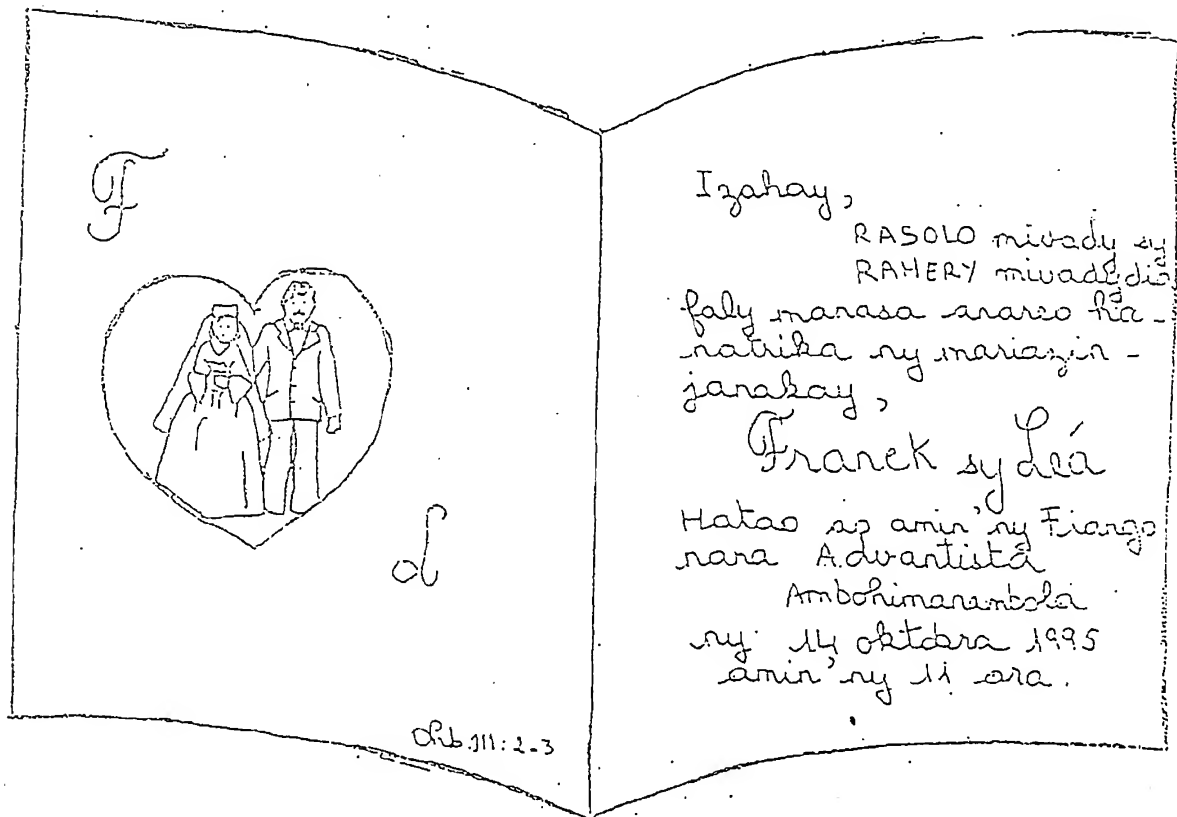 F
L
Izahay,
RASOLO mivady sy
RAHERY mivady dia
faly manasa anareo ha-
natrika ny mariazin-
janakay,
Franck sy Léa
Hatao ao amin'ny Fiango
nana Advantista
ny 14 oktobra 1995
amin'ny 11 ora.